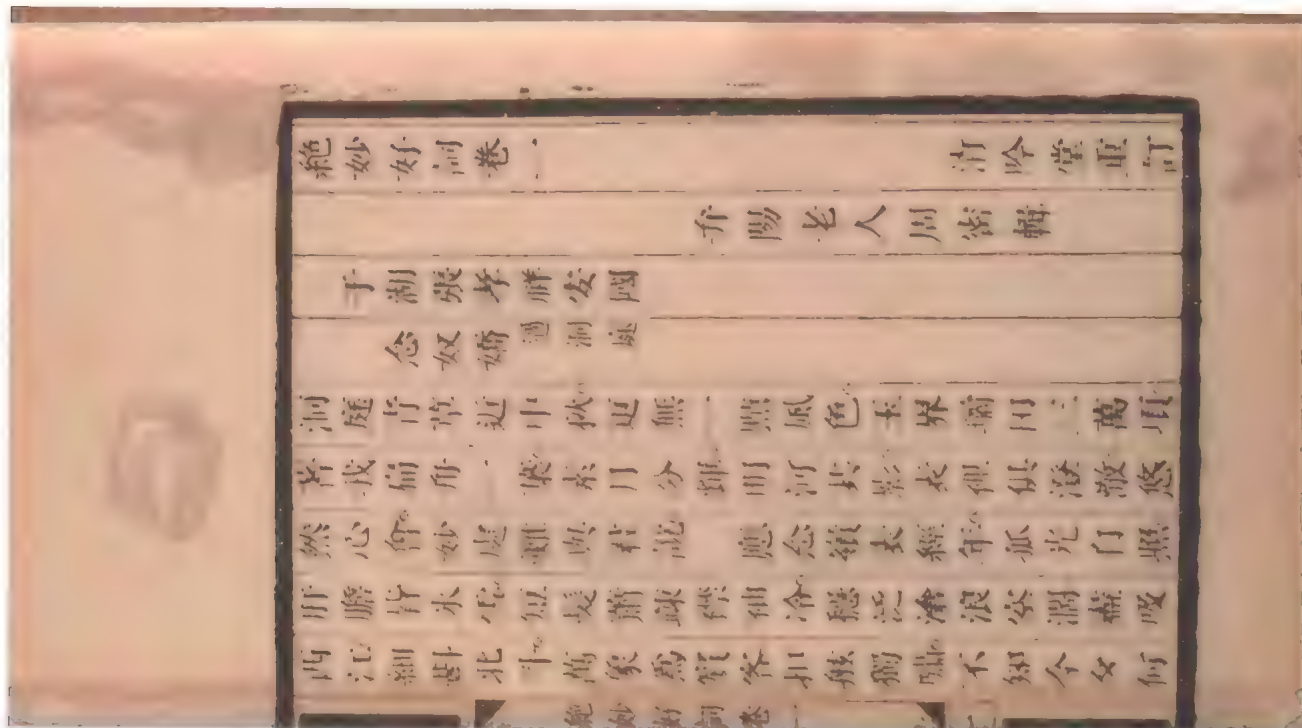 絶妙好詞卷一 清吟堂重訂
弁陽老人周密輯
于湖張孝祥安國
念奴嬌 過洞庭
洞庭青草近中秋更無一點風色玉界瓊田三萬頃
著我扁舟一葉素月分輝明河共影表裏俱澄澈悠
然心會妙處難與君說 應念嶺表經年孤光自照
肝膽皆冰雪短髮蕭疎襟袖冷穩泛滄浪空濶盡吸
西江細斟北斗萬象爲賓客扣舷獨嘯不知今夕何
絶妙好詞卷一